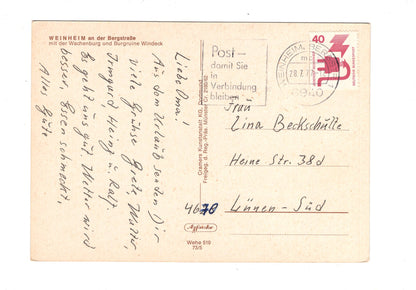 WEINHEIM an der Bergstraße
mit der Wachenburg und Burgruine Windeck
Liebe Oma!
Aus dem Urlaub senden Dir
viele Grüße Grete, Walter,
Irmgard Heinz u. Ralf.
Es geht uns gut. Wetter wird
besser, Essen schmeckt,
Alles Gute
Cramers Kunstanstalt KG, Dortmund
Post –
damit Sie
in
Verbindung
bleiben
WEINHEIM, BERGSTR 1
28.7.77
6940
40
DEUTSCHE BUNDESPOST
Frau
Lina Beckschulte
Heine Str. 38d
4670 Lünen-Süd
Wehe 519
73/5